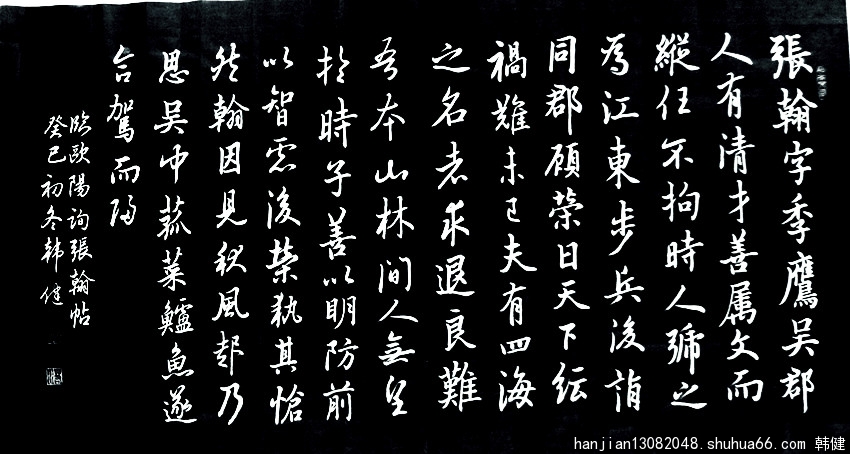 張翰字季鷹吳郡
人有清才善属文而
縱任不拘時人號之
為江東步兵後詣
同郡顧榮曰天下紜
禍難未已夫有四海
之名者求退良難
吾本山林間人無望
於時子善以明防前
以智慮後榮執其愴
然翰因見秋風起乃
思吳中菰菜鱸魚遂
命駕而歸
臨歐陽詢張翰帖
癸巳初冬韩健
hanjian13082048.shuhua66.com 韩健